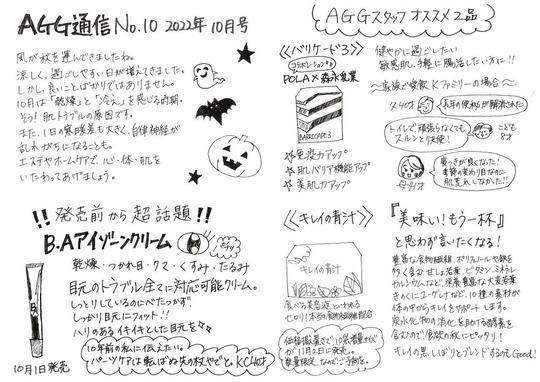 AGG通信 No.10 2022年10月号
風が秋を運んできましたね。
涼しく、過ごしやすい日が増えてきました。
しかし、良いことばかりではありません。
10月は「乾燥」と「冷え」を感じる時期。
そう！肌トラブルの原因です。
また、1日の寒暖差も大きく、自律神経が
乱れがちになることも。
エステやホームケアで、心・体・肌を
いたわってあげましょう。
!! 発売前から超話題 !!
B.Aアイゾーンクリーム
乾燥・つかれ目・クマ・くすみ・たるみ
目元のトラブル全てに対応可能クリーム。
しっとりしているのにべたつかず
しっかり目元にフィット!!
ハリのあるイキイキとした目元を☆☆
10年前の私に伝えたい。
パーツケアは転ばぬ先の杖やでと。K.C40才
10月1日発売
AGGスタッフオススメ2品
《バリケード3》
コラボレーション
POLA×森永乳業
BARRICADE3
☆免疫力アップ
☆肌バリア機能アップ
☆美肌力アップ
健やかに過ごしたい
敏感肌、手軽に腸活したい方に!!
〜家族で愛飲Kファミリーの場合〜
父40才
長年の便秘が解消された
トイレで頑張らなくても
スルンと快便！
こども
8才
母40才
寝つきが良くなった！
季節の変わり目なのに
肌荒れしなかった!!
《キレイの青汁》
キレイの青汁
食べる美容液といわれる
価格据置きで10袋増量が
11月2日に発売。
数量限定なのでご予約を。
『美味い！もう一杯』
と思わず言いたくなる！
豊富な食物繊維、ポリフェノールや鉄を
多く含む甘しょ若葉、ビタミン、ミネラル
カルシウムなど、栄養豊富な大麦若葉
きのくにユーグレナなど、10種の素材が
体の中からキレイをサポートします。
炭水化物の消化を助ける酵素を
含むので、食欲の秋にピッタリ！
キレイの黒しぼりとブレンドするのもGood!